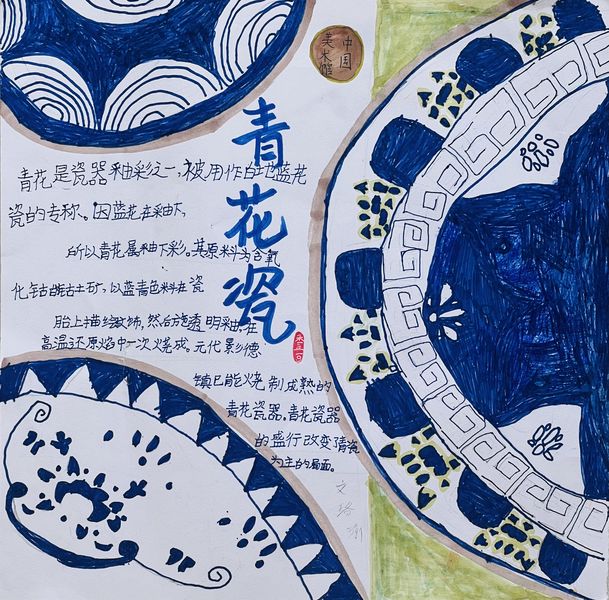 中国
美术馆
青花瓷
青花是瓷器釉彩之一,被用作白地蓝花
瓷的专称。因蓝花在釉下,
所以青花属釉下彩。其原料为含氧
化钴的钴土矿,以蓝青色料在瓷
胎上描绘纹饰,然后施透明釉,在
高温还原焰中一次烧成。元代景德
镇已能烧制成熟的
青花瓷器。青花瓷器
的盛行改变清瓷
为主的局面。